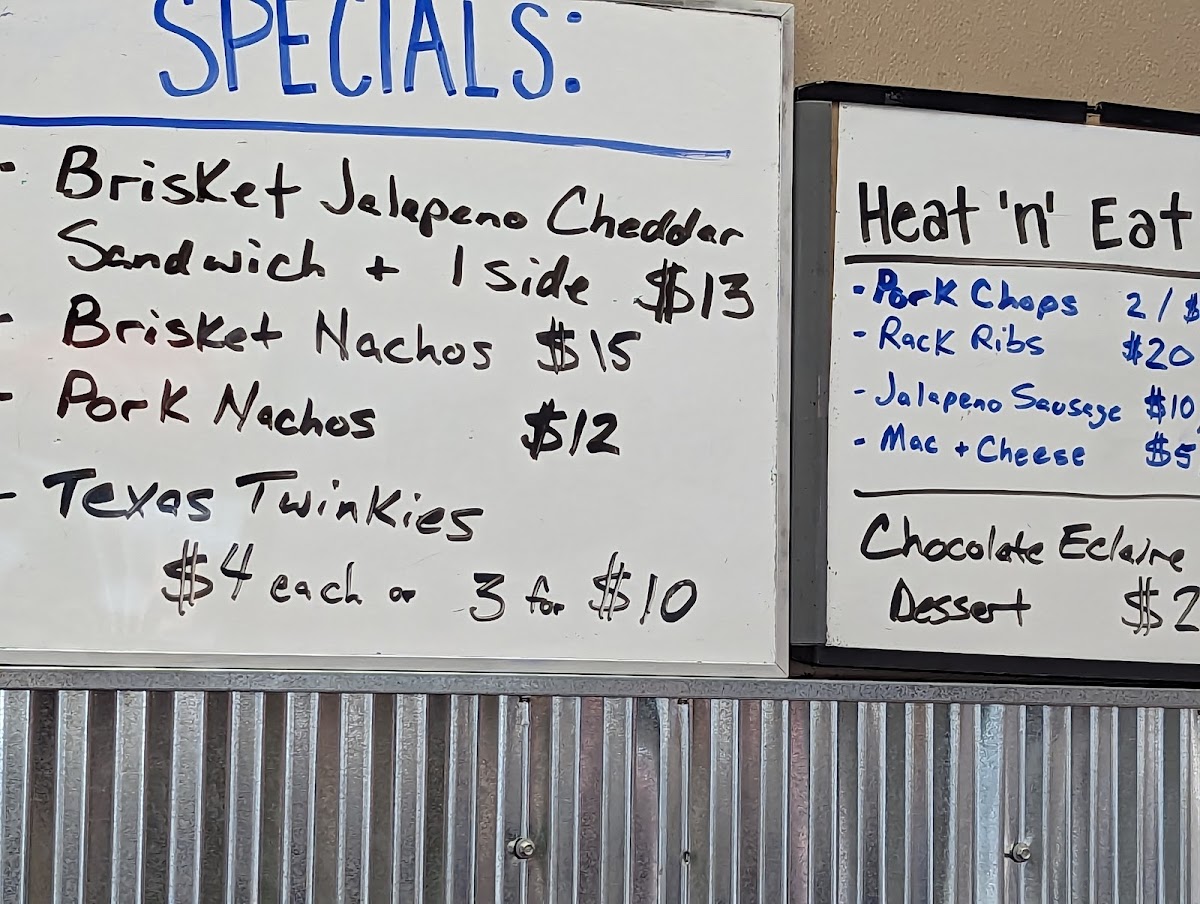 SPECIALS:
- Brisket Jalapeno Cheddar
Sandwich + 1 side $13
- Brisket Nachos $15
- Pork Nachos $12
- Texas Twinkies
$4 each or 3 for $10
Heat 'n' Eat
- Pork Chops 2 / $
- Rack Ribs $20
- Jalapeno Sausage $10
- Mac + Cheese $5
Chocolate Eclaire
Dessert $2